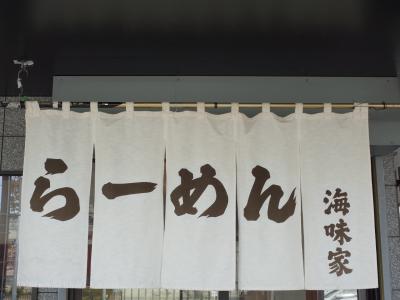 らーめん
海味家